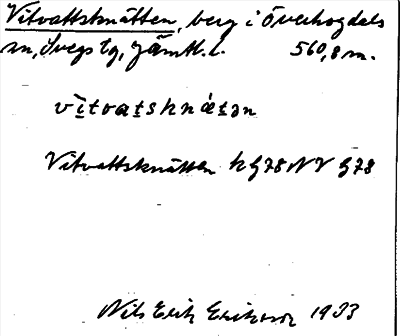 Vitvattsknätten, berg i Överhogdals
sn, Svegs tg, Jämtl. l. 560,8 m.
vìtvatsknǽtən
Vitvattsknätten hg 78 NV g 78
Nils Erik Eriksson 1933